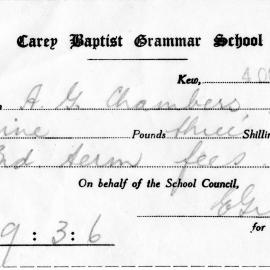 Carey Baptist Grammar School
Kew,
A G Chambers
nine Pounds three Shillin
3rd term fees
On behalf of the School Council,
for
9 : 3 : 6